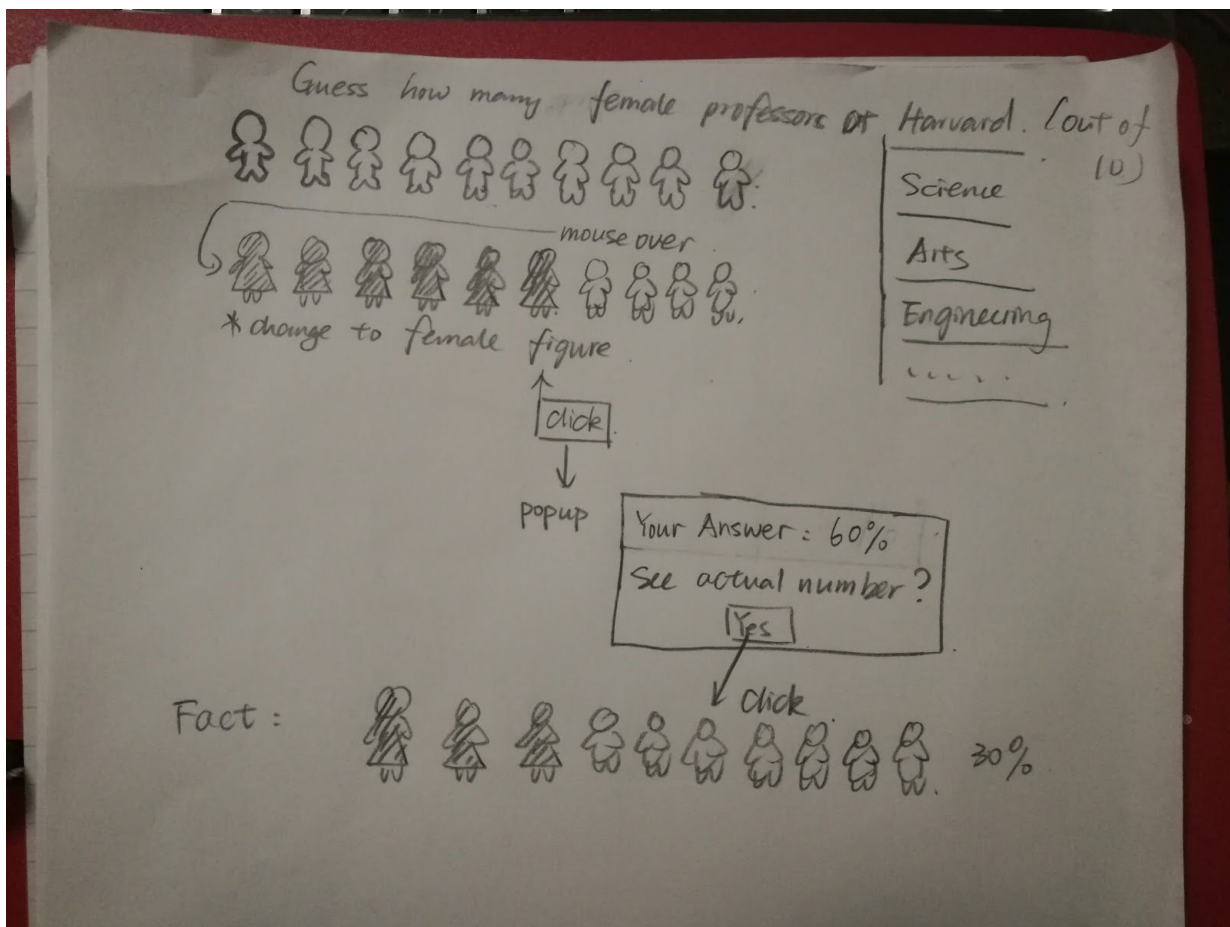 Guess how many female professors at Harvard. (out of 10)
Science
Arts
Engineering
.....
mouse over
* change to female figure
click
popup
Your Answer: 60%
See actual number?
Yes
click
Fact:
30%